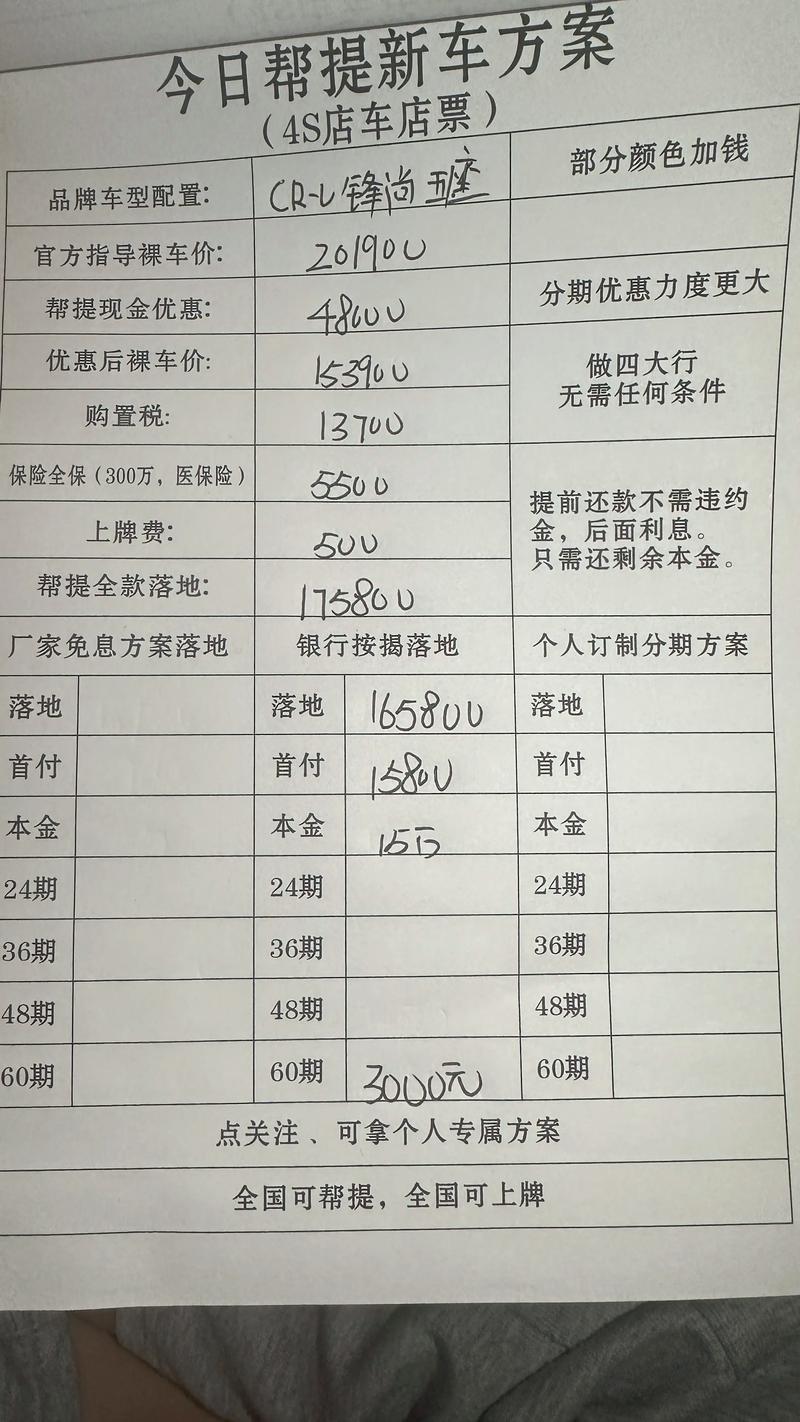 今日帮提新车方案
(4S店车店票)
品牌车型配置: CR-V 锋尚 五座 部分颜色加钱
官方指导裸车价: 201900
帮提现金优惠: 48000 分期优惠力度更大
优惠后裸车价: 153900 做四大行
无需任何条件
购置税: 13700
保险全保(300万,医保险) 5500 提前还款不需违约
金,后面利息。
只需还剩余本金。
上牌费: 500
帮提全款落地: 175800
厂家免息方案落地 银行按揭落地 个人订制分期方案
落地 落地 165800 落地
首付 首付 15800 首付
本金 本金 15万 本金
24期 24期 24期
36期 36期 36期
48期 48期 48期
60期 60期 3000元 60期
点关注、可拿个人专属方案
全国可帮提,全国可上牌